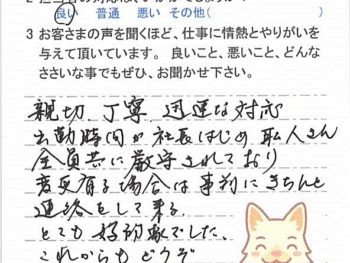 良い 普通 悪い その他( )
3 お客さまの声を聞くほど、仕事に情熱とやりがいを
与えて頂いています。 良いこと、悪いこと、どんな
ささいな事でもぜひ、お聞かせ下さい。
親切、丁寧、迅速な対応
出勤時間が社長はじめ職人さん
全員共に厳守されており
変更有る場合は事前にきちんと
連絡をして来る
とても好印象でした。
これからもどうぞ